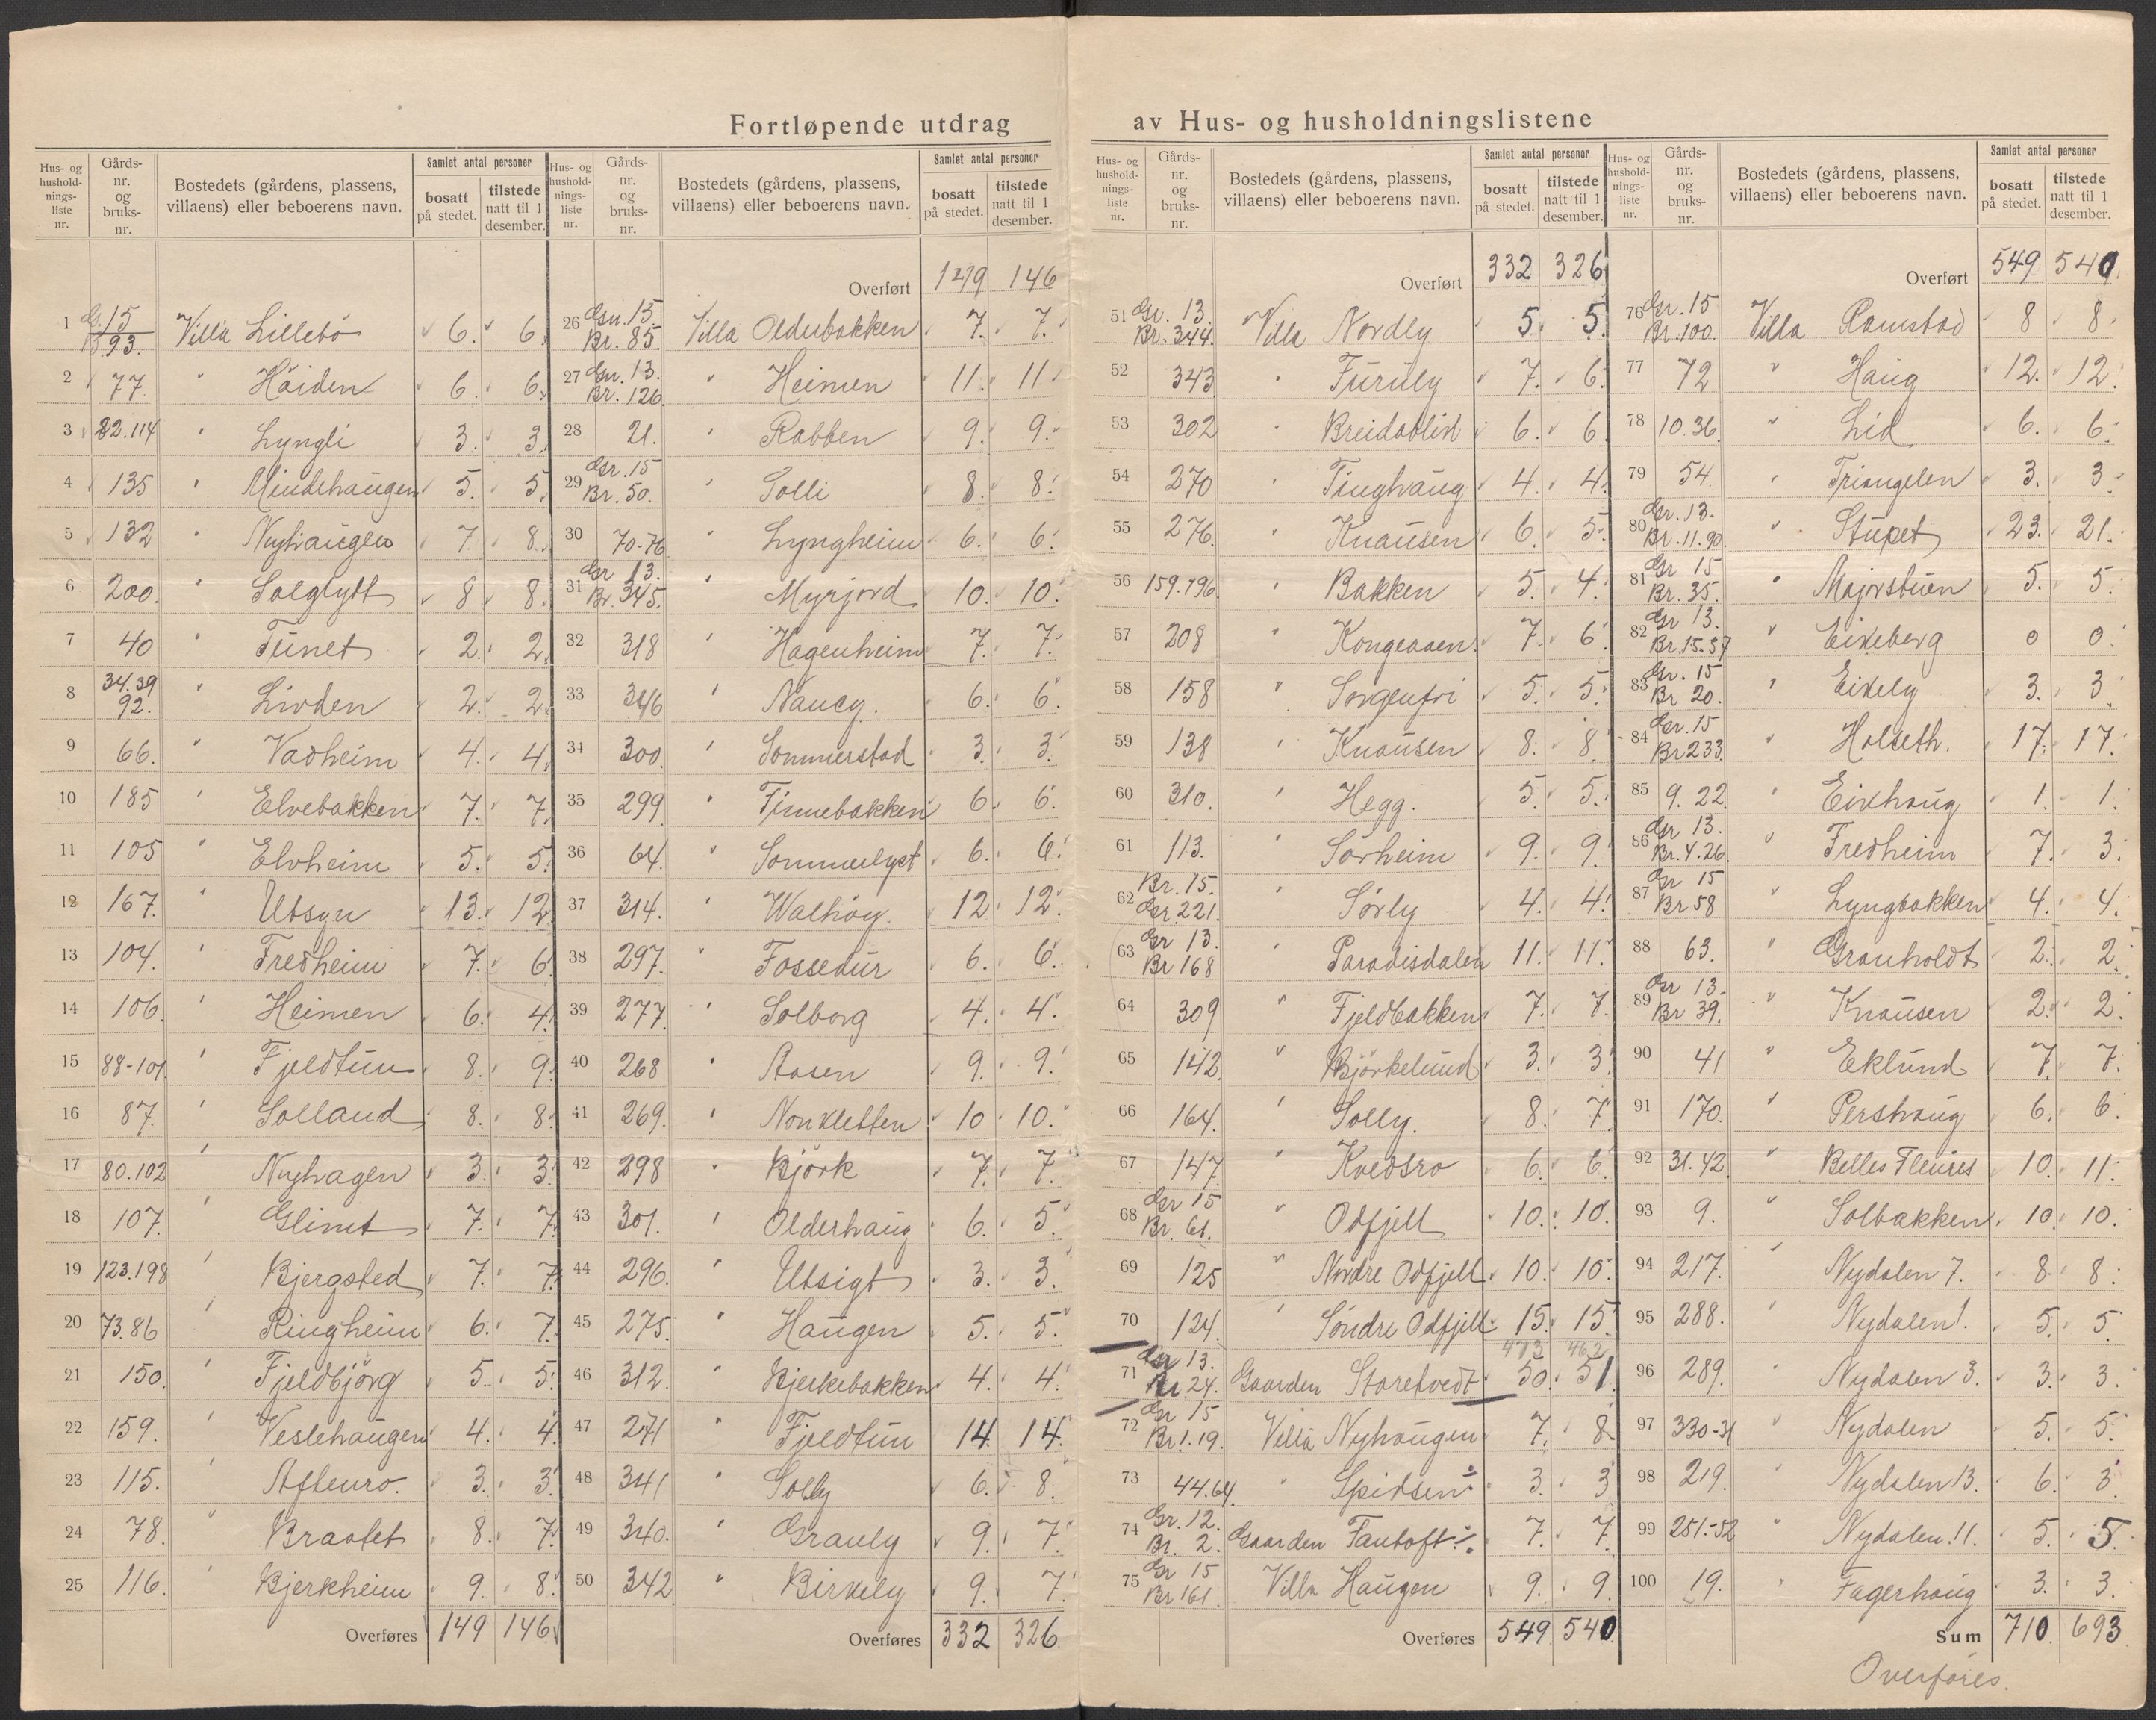 Fortløpende utdrag av Hus- og husholdningslistene
Hus- og husholdningsliste nr. Gårdsnr. og bruksnr. Bostedets (gårdens, plassens, villaens) eller beboerens navn. Samlet antal personer bosatt på stedet. tilstede natt til 1 desember.
1 G. 15 B. 93. Villa Lillebö 6. 6.
2 77. " Höiden 6. 6.
3 82.114 " Lyngli 3. 3.
4 135 " Mindehaugen 5. 5.
5 132 " Nyhaugen 7. 8.
6 200. " Solglytt 8 8.
7 40 " Tunet 2. 2.
8 34.39 92. " Livden 2. 2.
9 66. " Vadheim 4. 4.
10 185 " Elvebakken 7. 7.
11 105 " Elvheim 5. 5.
12 167. " Utsyn 13. 12.
13 104. " Fredheim 7. 6.
14 106. " Heimen 6. 4.
15 88-101 " Fjeldtun 8. 9.
16 87. " Solland 8. 8.
17 80.102 " Nyhagen 3. 3.
18 107. " Glimt 7. 7.
19 123.198 " Bjergsted 7. 7.
20 73.86 " Ringheim 6. 7.
21 150. " Fjeldbjörg 5. 5.
22 159. " Veslehaugen 4. 4.
23 115. " Afleuro. 3. 3.
24 78. " Braatet 8. 7.
25 116. " Bjerkheim 9. 8.
Overføres 149 146
Hus- og husholdningsliste nr. Gårdsnr. og bruksnr. Bostedets (gårdens, plassens, villaens) eller beboerens navn. Samlet antal personer bosatt på stedet. tilstede natt til 1 desember.
Overført 149 146
26 Gn. 15 Br. 85. Villa Oldubakken 7. 7.
27 Gn. 13. Br. 126. " Heimen 11. 11.
28 21. " Rabben 9. 9.
29 Gr. 15 Br. 50. " Solli 8. 8.
30 70-76 " Lyngheim 6. 6.
31 Gr 13. Br. 345. " Myrjord 10. 10.
32 318 " Hagenheim 7. 7.
33 346 " Nancy. 6. 6.
34 300. " Sommerstad 3. 3.
35 299. " Finnebakken 6. 6.
36 64. " Sommerlyst 6. 6.
37 314. " Walhöy. 12 12.
38 297. " Fossedur 6. 6.
39 277. " Solborg 4. 4.
40 268 " Aasen 9. 9.
41 269. " Nonkletten 10 10.
42 298 " Björk 7. 7.
43 301. " Olderhaug 6. 5.
44 296. " Utsigt 3. 3.
45 275. " Haugen 5. 5.
46 312. " Bjerkebakken 4. 4.
47 271 " Fjeldtun 14. 14.
48 341 " Solly 6. 8.
49 340. " Granly 9. 7.
50 342 " Birkely 9. 7.
Overføres 332 326
Hus- og husholdningsliste nr. Gårdsnr. og bruksnr. Bostedets (gårdens, plassens, villaens) eller beboerens navn. Samlet antal personer bosatt på stedet. tilstede natt til 1 desember.
Overført 332 326
51 Gr. 13. Br. 344. Villa Nordly 5. 5.
52 343 " Furuly 7. 6.
53 302 " Breidablik 6. 6
54 270 " Tinghaug 4. 4.
55 276. " Knausen 6. 5.
56 159.196. " Bakken 5. 4.
57 208 " Kongeaaen. 7. 6.
58 158 " Sorgenfri 5. 5.
59 138 " Knausen 8. 8.
60 310. " Hegg. 5. 5.
61 113. " Sörheim 9. 9.
62 Br. 15. Gr 221. " Sörly 4. 4.
63 Gr 13. Br 168 " Paradisdalen 11. 11.
64 309 " Fjeldbakken 7. 7.
65 142. " Björkelund 3. 3.
66 164. " Solly. 8. 7.
67 147. " Kvedsro 6. 6.
68 Gr 15 Br. 61. " Odfjell 10. 10.
69 125 " Nordre Odfjell 10. 10.
70 124. " Söndre Odfjell 15. 15.
473 462
71 Gr 13. Br 24. Gaarden Storetvedt 50. 51.
72 Gr 15 Br 1.19. Villa Nyhaugen 7. 8
73 44.64. " Spidsen ÷ 3. 3
74 Gr. 12. Br. 2. Gaarden Fantoft ÷. 7. 7.
75 Gr 15 Br 161. Villa Haugen 9. 9.
Overføres 549 540
Hus- og husholdningsliste nr. Gårdsnr. og bruksnr. Bostedets (gårdens, plassens, villaens) eller beboerens navn. Samlet antal personer bosatt på stedet. tilstede natt til 1 desember.
Overført 549 540
76 Gr. 15 Br. 100. Villa Ramstad 8 8.
77 72 " Haug 12. 12.
78 10.36. " Lid 6. 6.
79 54. " Triangelen 3. 3.
80 Gr. 13. Br. 11.90. " Stupet 23. 21.
81 Gr 15 Br. 35. " Majorstuen 5. 5.
82 Gr 13. Br. 15-57 " Eikeberg 0 0.
83 Gr. 15 Br 20. " Eikely 3. 3
84 Gr. 15 Br 233. " Holseth. 17. 17.
85 9. 22. " Eikhaug 1. 1.
86 Gr 13. Br. 4.26. " Fredheim 7. 3.
87 Gr 15 Br 58 " Lyngbakken 4. 4.
88 63. " Granholdt 2. 2.
89 Gr 13. Br 39. " Knausen 2. 2.
90 41 " Eklund 7. 7.
91 170. " Pershaug 6. 6.
92 31.42. " Belles Fleures 10. 11.
93 9. " Solbakken 10. 10.
94 217. " Nydalen 7. 8. 8.
95 288. " Nydalen 1. 5. 5.
96 289. " Nydalen 3. 3. 3.
97 330-31 " Nydalen 5. 5.
98 219. " Nydalen 13. 6. 3.
99 251-52 " Nydalen. 11. 5. 5.
100 19. " Fagerhaug 3. 3.
Sum 710. 693
Overföres.